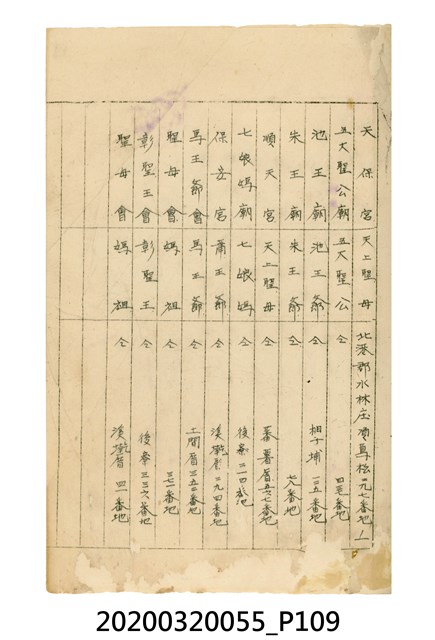 天保宮 天上聖母 北港郡水林庄
五大聖公廟 五大聖公 仝
池王廟 池王爺 仝 一二五番地
朱王廟 朱王爺 仝 七八番地
順天宮 天上聖母 仝 蕃薯厝五六七番地
七娘媽廟 七娘媽 仝 後寮二一四番地
保安宮 蕭王爺 仝 二九四番地
馬王爺會 馬王爺 仝 土間厝三五二番地
聖母會 媽祖 仝 三七一番地
彰聖王會 彰聖王 仝 後寮三三六番地
聖母會 媽祖 仝 四一番地
20200320055_P109